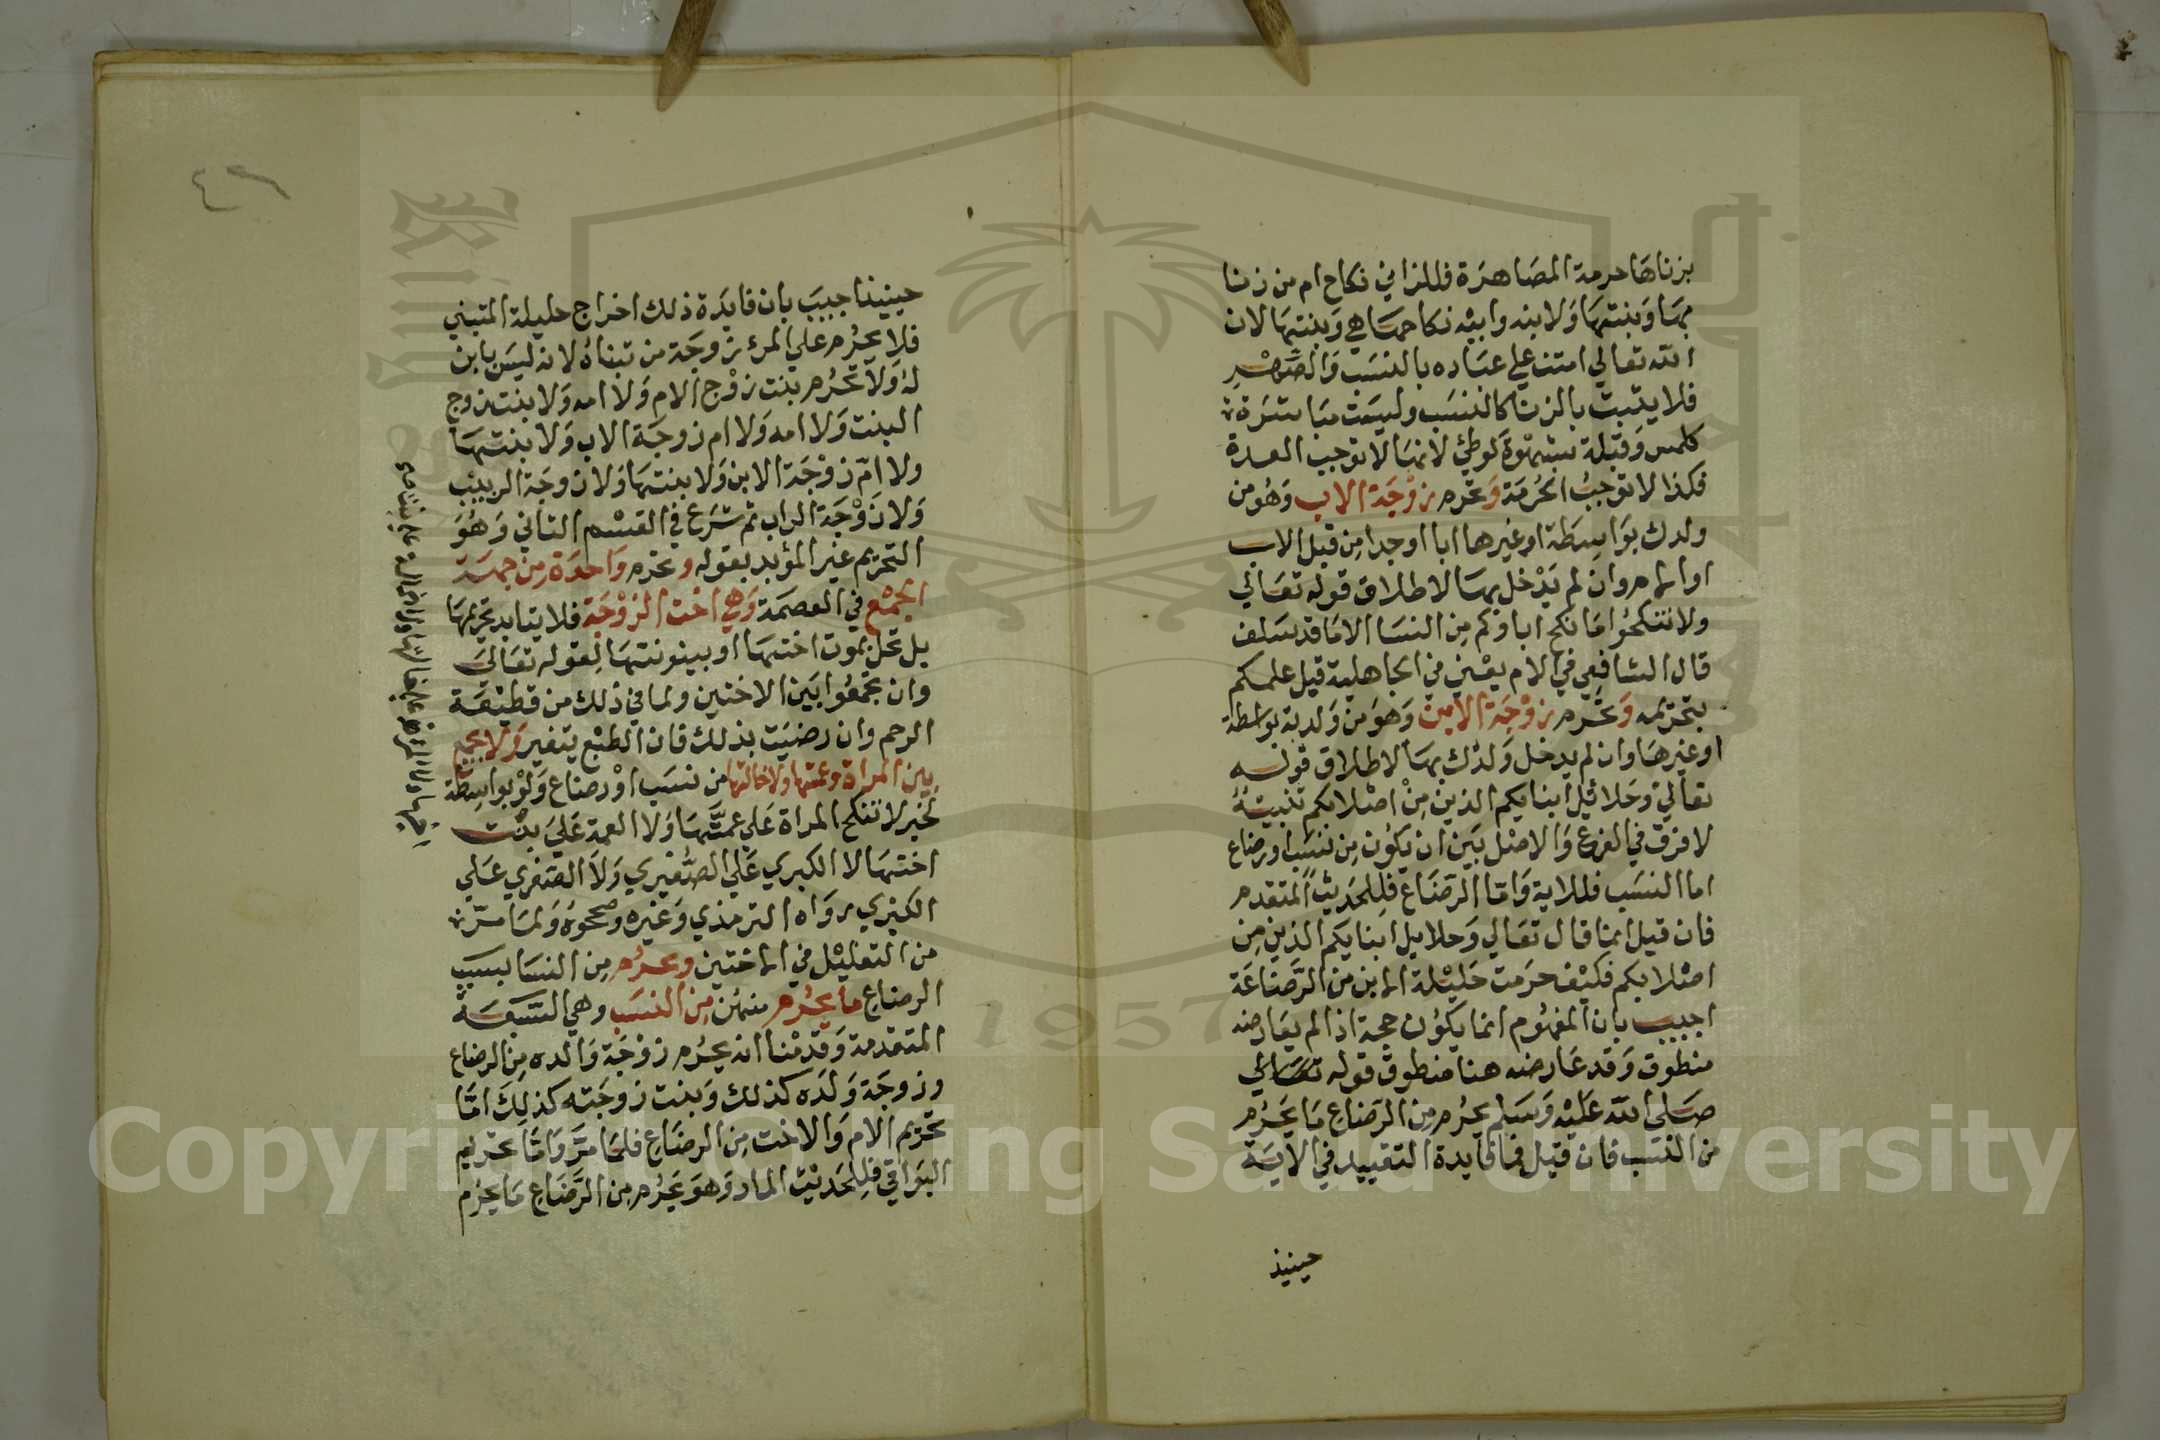 بزناها حرمة المصاهرة فللزاني نكاح ام من زنا
بها وبنتها ولابنه وابيه نكاحها هي وبنتها لان
الله تعالي امتن علي عباده بالنسب والصهر
فلا يثبت بالزنا كالنسب وليست مباشرة
كلمس وقبلة بشهوة كوطئ لانها لا توجب العدة
فكذا لا توجب الحرمة وتحرم زوجة الاب وهو من
ولدك بواسطة اوغيرها ابا او جدا من قبل الاب
او الام وان لم يدخل بها لاطلاق قوله تعالي
ولا تنكحوا ما نكح اباوكم من النسا الا ما قد سلف
قال الشافعي في الام يعني في الجاهلية قبل علمكم
بتحريمه وتحرم زوجة الابن وهو من ولدته بواسطة
او غيرها وان لم يدخل ولدك بها لاطلاق قوله
تعالي وحلائل ابنايكم الذين من اصلابكم تنبيه
لا فرق في الفرع والاصل بين ان يكون من نسب او رضاع
اما النسب فللاية واما الرضاع فللحديث المتقدم
فان قيل انما قال تعالي وحلايل ابنايكم الذين من
اصلابكم فكيف حرمت حليلة الابن من الرضاعة
اجيب بان المفهوم انما يكون حجة اذا لم يعارضه
منطوق وقد عارضه هنا منطوق قوله تعالي
صلي الله عليه وسلم يحرم من الرضاع ما يحرم
من النسب فان قيل فما فايدة التقييد في الاية
حينيذ
٤٦
حينيذ اجيب بان فايدة ذلك اخراج حليلة المتبني
فلا يحرم علي المرء زوجة من تبناه لانه ليس بابن
له ولا تحرم بنت زوج الام ولا امه ولا بنت زوج
البنت ولا امه ولا ام زوجة الاب ولا بنتها
ولا ام زوجة الابن ولا بنتها ولا زوجة الربيب
ولا زوجة الراب ثم شرع في القسم الثاني وهو
التحريم غير المؤبد بقوله وتحرم واحدة من جهة
الجمع في العصمة وهي اخت الزوجة فلا يتابد تحريمها
بل تحل بموت اختها او بينونتها لقوله تعالي
وان تجمعوا بين الاختين ولما في ذلك من قطيعة
الرحم وان رضيت بذلك فان الطبع يتغير ولا يجمع
بين المراة وعمتها ولا خالتها من نسب او رضاع ولو بواسطة
لخبر لا تنكح المراة علي عمتها ولا العمة علي بنت
اختها لا الكبري علي الصغيري ولا الصغري علي
الكبري رواه الترمذي وغيره وصححوه ولما مر
من التعليل في الاختين ويحرم من النسا بسبب
الرضاع ما يحرم منهن من النسب وهي السبعة
المتقدمة وقدمنا انه يحرم زوجة والده من الرضاع
وزوجة ولده كذلك وبنت زوجته كذلك اما
تحريم الام والاخت من الرضاع فلما مر واما تحريم
البواقي فللحديث المار وهو يحرم من الرضاع ما يحرم
Copyright © King Saud University
1957